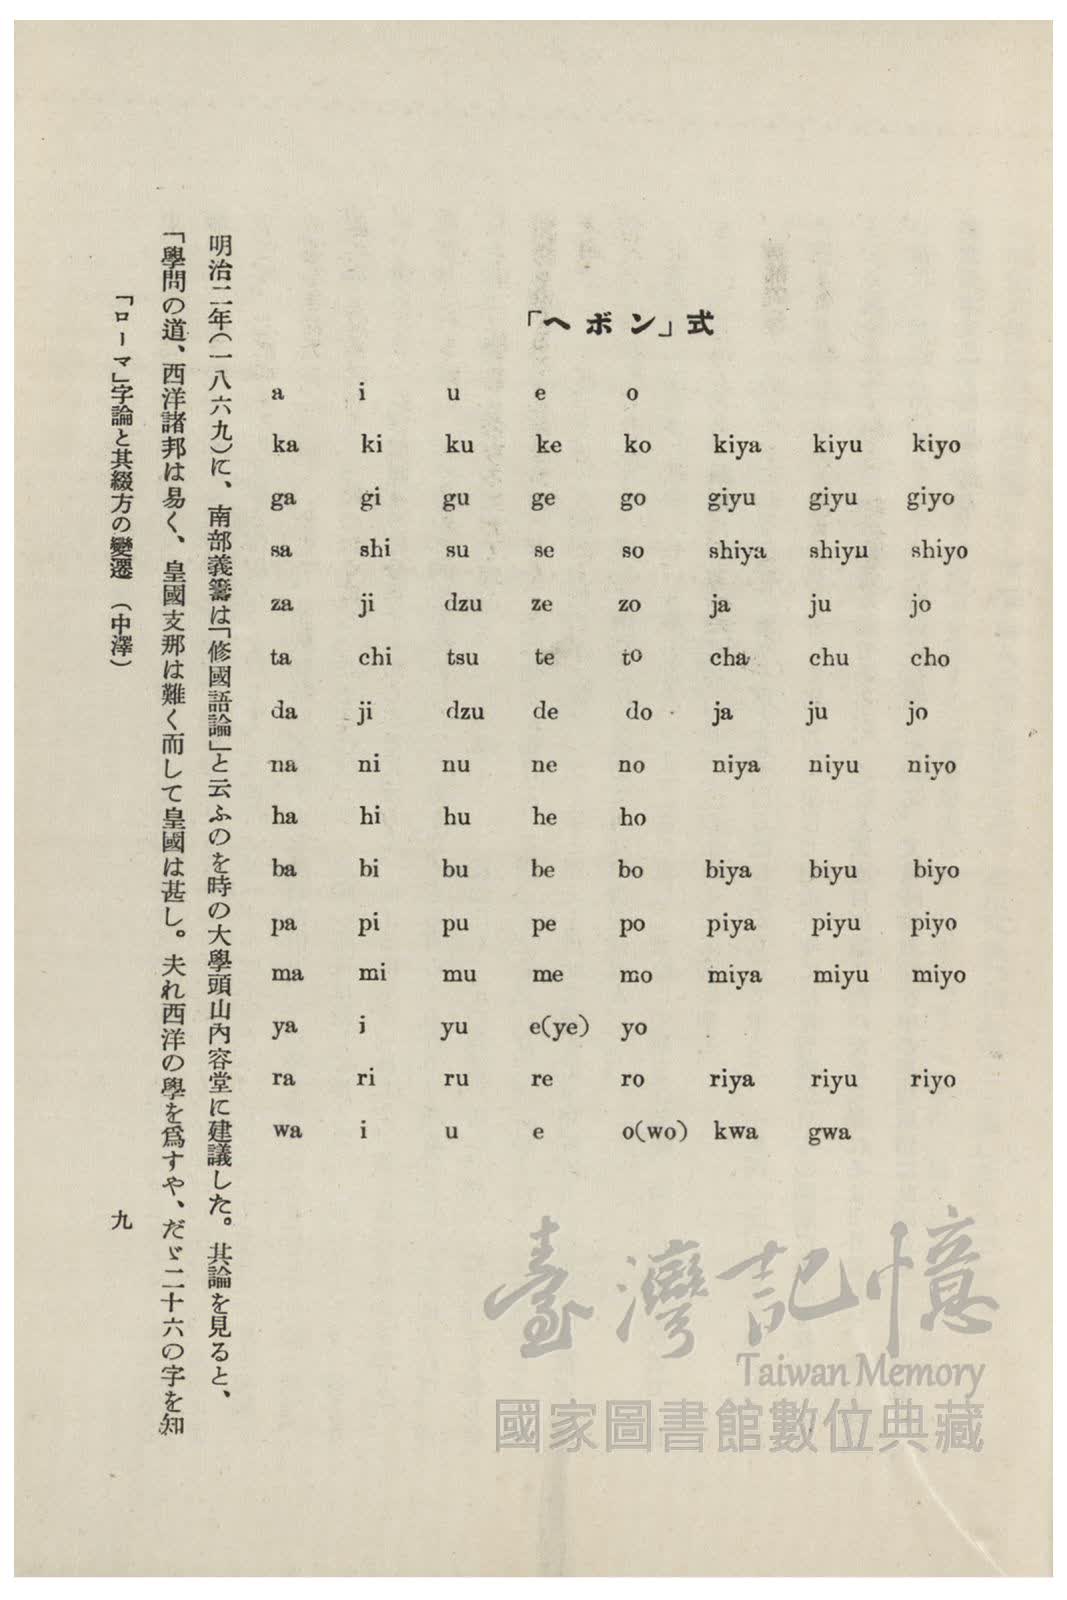 「ヘボン」式
a i u e o
ka ki ku ke ko kiya kiyu kiyo
ga gi gu ge go giyu giyu giyo
sa shi su se so shiya shiyu shiyo
za ji dzu ze zo ja ju jo
ta chi tsu te to cha chu cho
da ji dzu de do ja ju jo
na ni nu ne no niya niyu niyo
ha hi hu he ho
ba bi bu be bo biya biyu biyo
pa pi pu pe po piya piyu piyo
ma mi mu me mo miya miyu miyo
ya i yu e(ye) yo
ra ri ru re ro riya riyu riyo
wa i u e o(wo) kwa gwa
明治二年(一八六九)に、南部義籌は「修國語論」と云ふのを時の大學頭山內容堂に建議した。其論を見ると、
「學問の道、西洋諸邦は易く、皇國支那は難く而して皇國は甚し。夫れ西洋の學を爲すや、だゞ二十六の字を知
「ローマ」字論と其綴方の變遷 (中澤)
九
臺灣記憶
Taiwan Memory
國家圖書館數位典藏